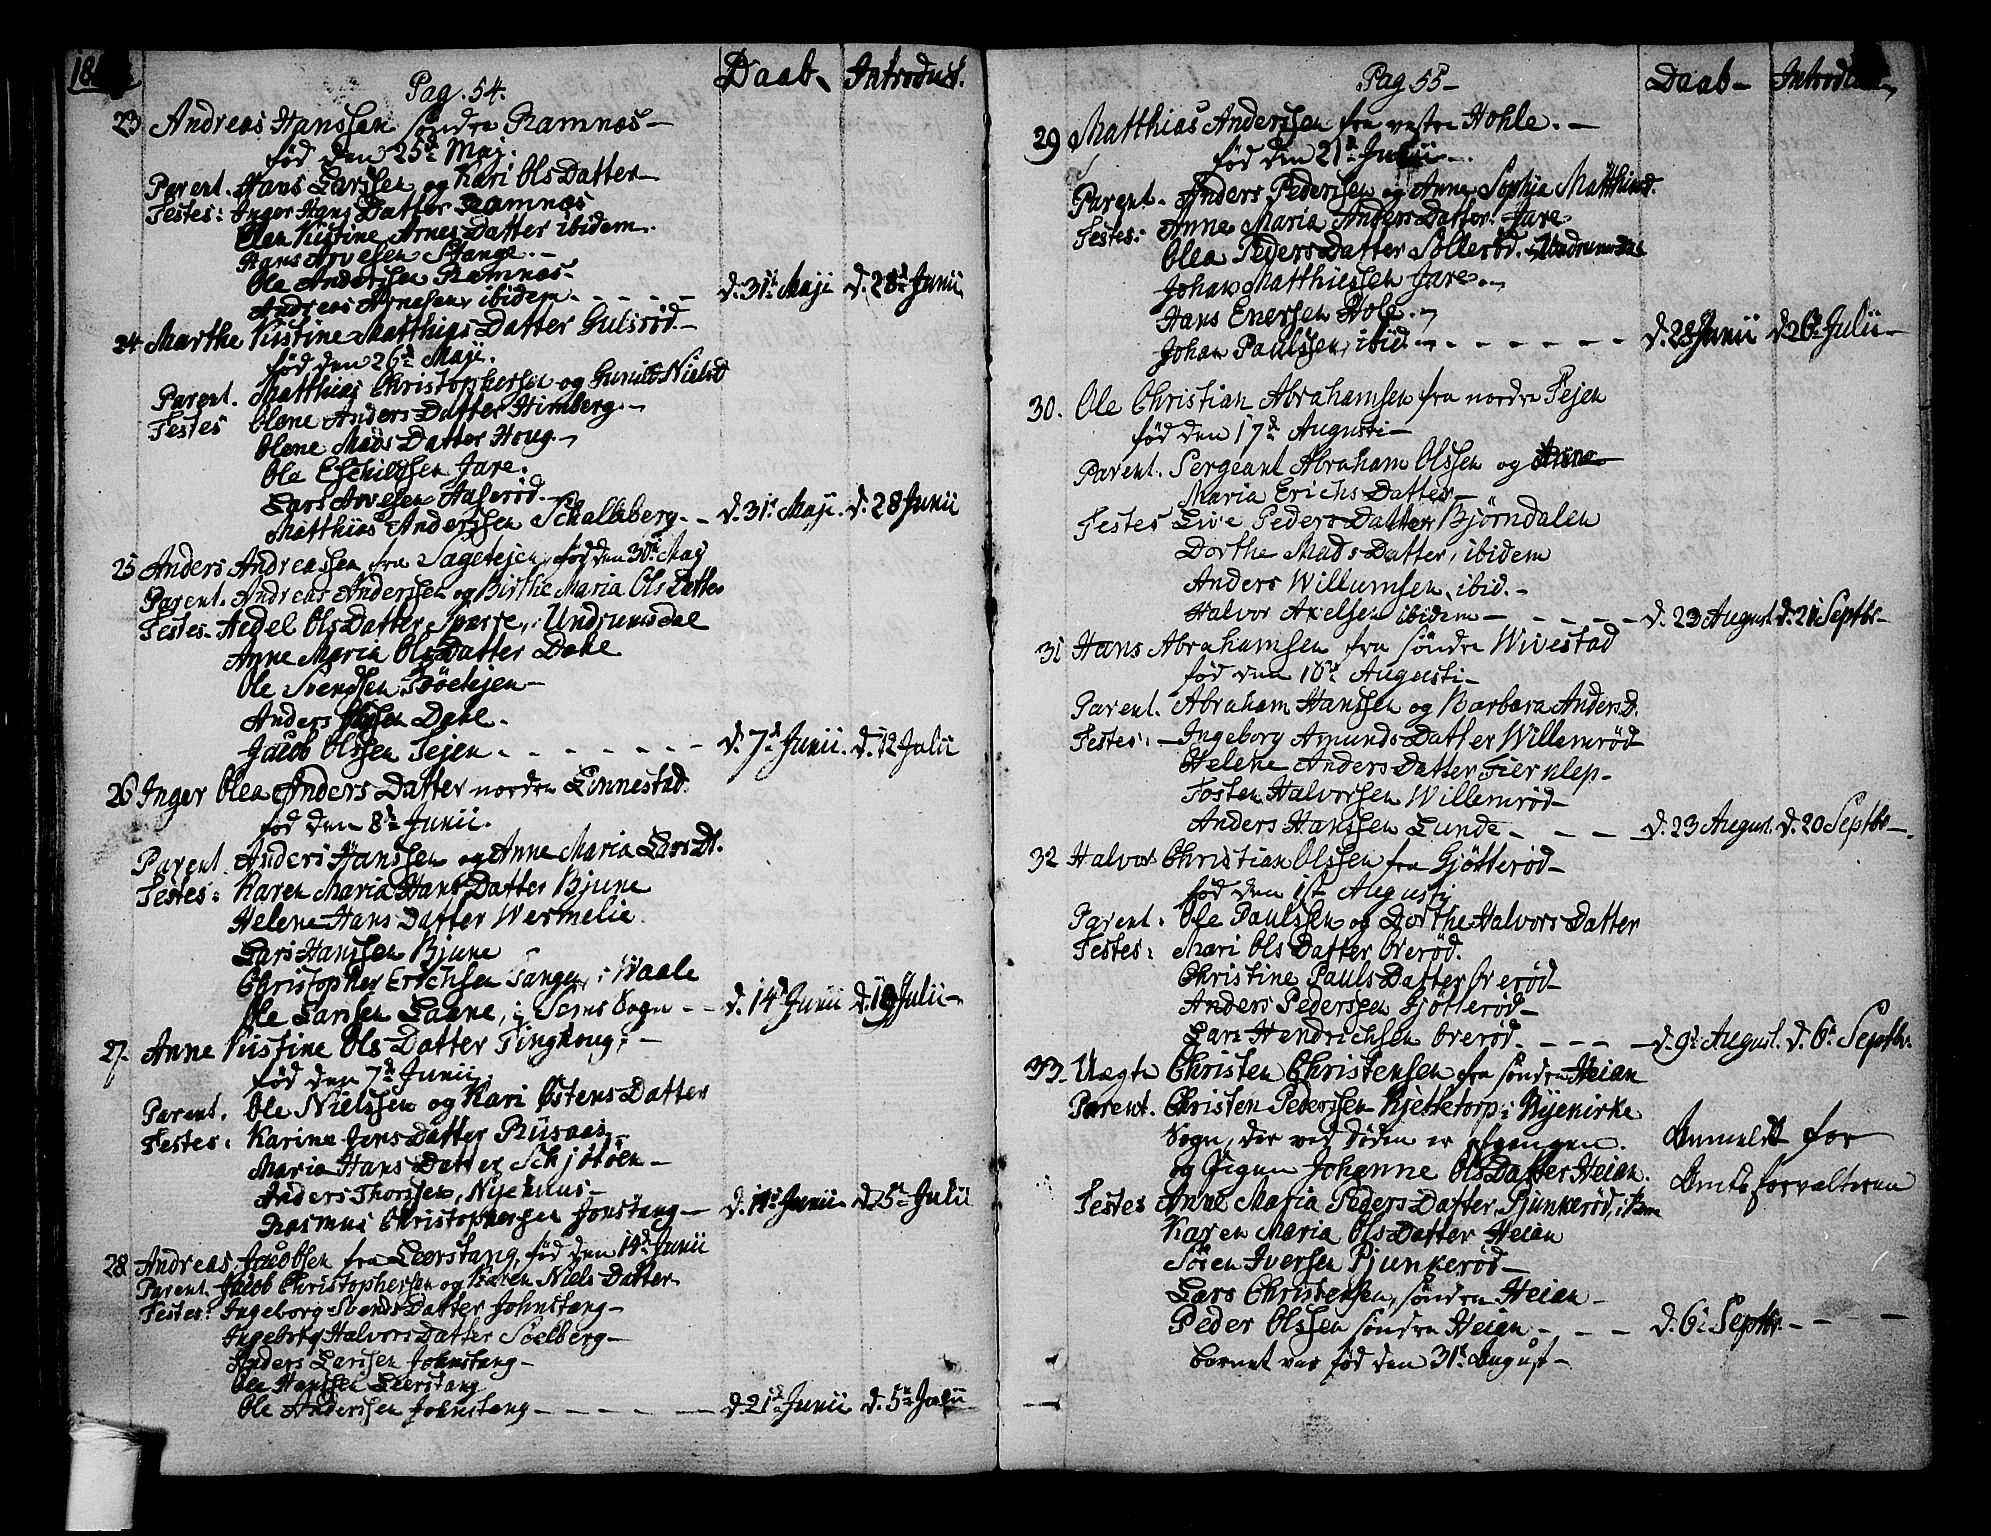 Pag. 54. Daab- Introduct.
23 Andreas Hanssen søndre Ramnæs-
fød den 25de Maj.
Parent. Hans Larssen og Kari OlsDatter-
Testes: Inger Hans Datter Ramnæs
Olea Kistine Arnes Datter ibidem.
Hans Arvesen Stange.-
Ole Anderssen Ramnæs-
Andreas Arnesen, ibidem - - - - - d. 31te Maji d. 28de Junii
24 Marthe Kistine Matthias Datter Gulsrød-
fød den 26de Maji.
Parent. Matthias Christophersen og Gunild Nielsd
Testes Olene Anders Datter Himberg.-
Olene Mads Datter Houg.-
Ole Eschildsen Jare.
Lars Arvesen Aaserød.-
Matthias Anderssen Schalleberg.- - d. 31te Maji. d. 28 Junii
25 Anders Andreassen fra Sagetejen, fød den 30te Maj
Parent. Andreas Anderssen og Birthe Maria Ols Datter
Testes- Hedel OlsDatter Sparre, i Undrumsdal
Anne Maria OlsDatter Dahl
Ole Svendsen Bøetejen-
Anders Olssen Dahl.
Jacob Olssen Tejen - - - - - - - d. 7de Junii. d. 12 Julii
26 Inger Olea Anders Datter nordre Linnestad.
fød den 8de Junii.
Parent. Anders Hanssen og Anne Maria Lars Dt.
Testes: Karen Maria Hans Datter Bjune
Helene Hans Datter Wermelie
Lars Hanssen Bjune
Christopher Erichsen Tangen i Waale
Ole Larssen Laane, i Sems Sogn - - d. 14de Junii d. 19 Julii-
27- Anne Kistine Ols Datter Tinghoug;-
fød den 7de Junii.
Parent. Ole Nielssen og Kari Østens Datter
Testes: Karine Jens Datter Rusaas,
Maria Hans Datter Schjøtøen-
Anders Thorssen, Nyehuus-
Rasmus Christophersen Jonstang- - d. 14de Junii- d. 5te Julii
28 Andreas Jacobsen fra Leerstang, fød den 14de Junii
Parent. Jacob Christophersen og Karen Niels Datter
Testes: Ingeborg Svends Datter Johnstang-
Ingeborg Halvors Datter Soelberg-
Anders Larssen Johnstang-
Ole Hanssen Leerstang
Ole Anderssen Johnstang - - - - - - d. 21de Junii d. 5te Julii
Pag 55- Daab-
29 Matthias Anderssen fra vestre Hohle.-
fød den 21de Junii-.
Parent- Anders Pederssen og Anne Sophja Matthiasd.
Testes: Anne Maria Anders Datter Jare
Olea Peders Datter Sollerød- Undrumsdal
Johan Matthiassen Jare.-
Hans Enersen Hole.-
Johan Paulssen, ibid - - - - - - - d. 28 Junii d 26 Julii-
30. Ole Christian Abrahamsen fra nordre Tejen
fød den 17de Augusti-
Parent. Sergeant Abraham Olssen og Anne
Maria Erichs Datter-
Testes Live Peders Datter Bjørndalen
Dorthe Mads Datter, ibidem
Anders Willumsen, ibid.-
Halvor Axelsen ibidem- - - - - - d. 23 August d. 21 Septbr-
31 Hans Abrahamsen fra søndre Wivestad
fød den 10de Augusti-
Parent. Abraham Hanssen og Barbara Anders D.
Testes:- Ingeborg Amunds Datter Willemrød
Helene Anders Datter Fierklep-
Tosten Halvorsen Willemrød-
Anders Hanssen Lunde- - - - d. 23 August. d. 20 Septbr-
32 Halvor Christian Olssen fra Gjøtterød-
fød den 1st Augusti
Parent. Ole Paulssen og Dorthe Halvors Datter
Testes: Mari Ols Datter Ørerød.
Christine Pauls Datter Ørerød-
Anders Pederssen Gjøtterød-
Lars Hendrichsen Ørerød. - - - - d. 9de August. d. 6te Septbr.
33- Uægte Christen Christensen fra søndre Heian
Parent. Christen Pederssen Kjelletorp i Nyekirke
Sogn, der ved Døden er afgangen. Anmeldt for
og Pigen Johanne OlsDatter Heian. Amtsforvalteren
Testes Anne Maria Peders Datter, Pjunkerød, i
Karen Maria Ols Datter Heian
Søren Iversen Pjunkerød-
Lars Christensen, søndre Heian-
Peder Olssen søndre Heian- - - - d. 6te Septbr. - - -
barnet var fød den 31te August-